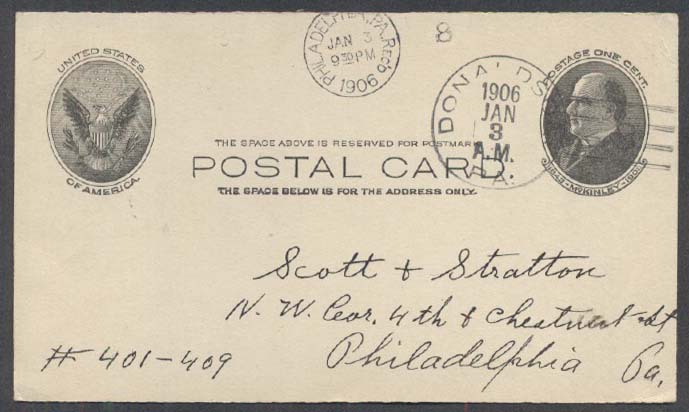 PHILADELPHIA, PA. REC'D
JAN 3
9 30 PM
1906
8
UNITED STATES
OF AMERICA.
DONA'DS
1906
JAN
3
A.M.
PA.
POSTAGE ONE CENT.
1843-McKINLEY-1901
THE SPACE ABOVE IS RESERVED FOR POSTMARK
POSTAL CARD.
THE SPACE BELOW IS FOR THE ADDRESS ONLY.
Scott & Stratton
N. W. Cor. 4th & Chestnut St
# 401-409
Philadelphia Pa.